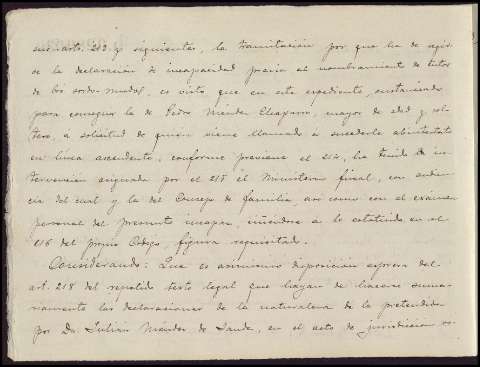 sus arts. 213 y siguientes, la tramitación por que ha de regir-
se la declaración de incapacidad previa al nombramiento de tutor
de los sordo-mudos, es visto que en este expediente, sustanciado
para conseguir la de Pedro Méndez Chaparro, mayor de edad y sol-
tero, a solicitud de quien viene llamado a sucederle abintestato
en línea ascendente, conforme previene el 214, ha tenido la in-
tervención asignada por el 215 el Ministerio fiscal, con audien-
cia del cual y la del Consejo de familia, así como con el examen
personal del presunto incapaz, ciñéndose a lo estatuido en el
216 del propio Código, figura requisitado.
Considerando: Que es asimismo disposición expresa del
art. 218 del repetido texto legal que hayan de hacerse suma-
riamente las declaraciones de la naturaleza de la pretendida
por Dn. Julián Méndez de Sande, en el acto de jurisdicción vo-